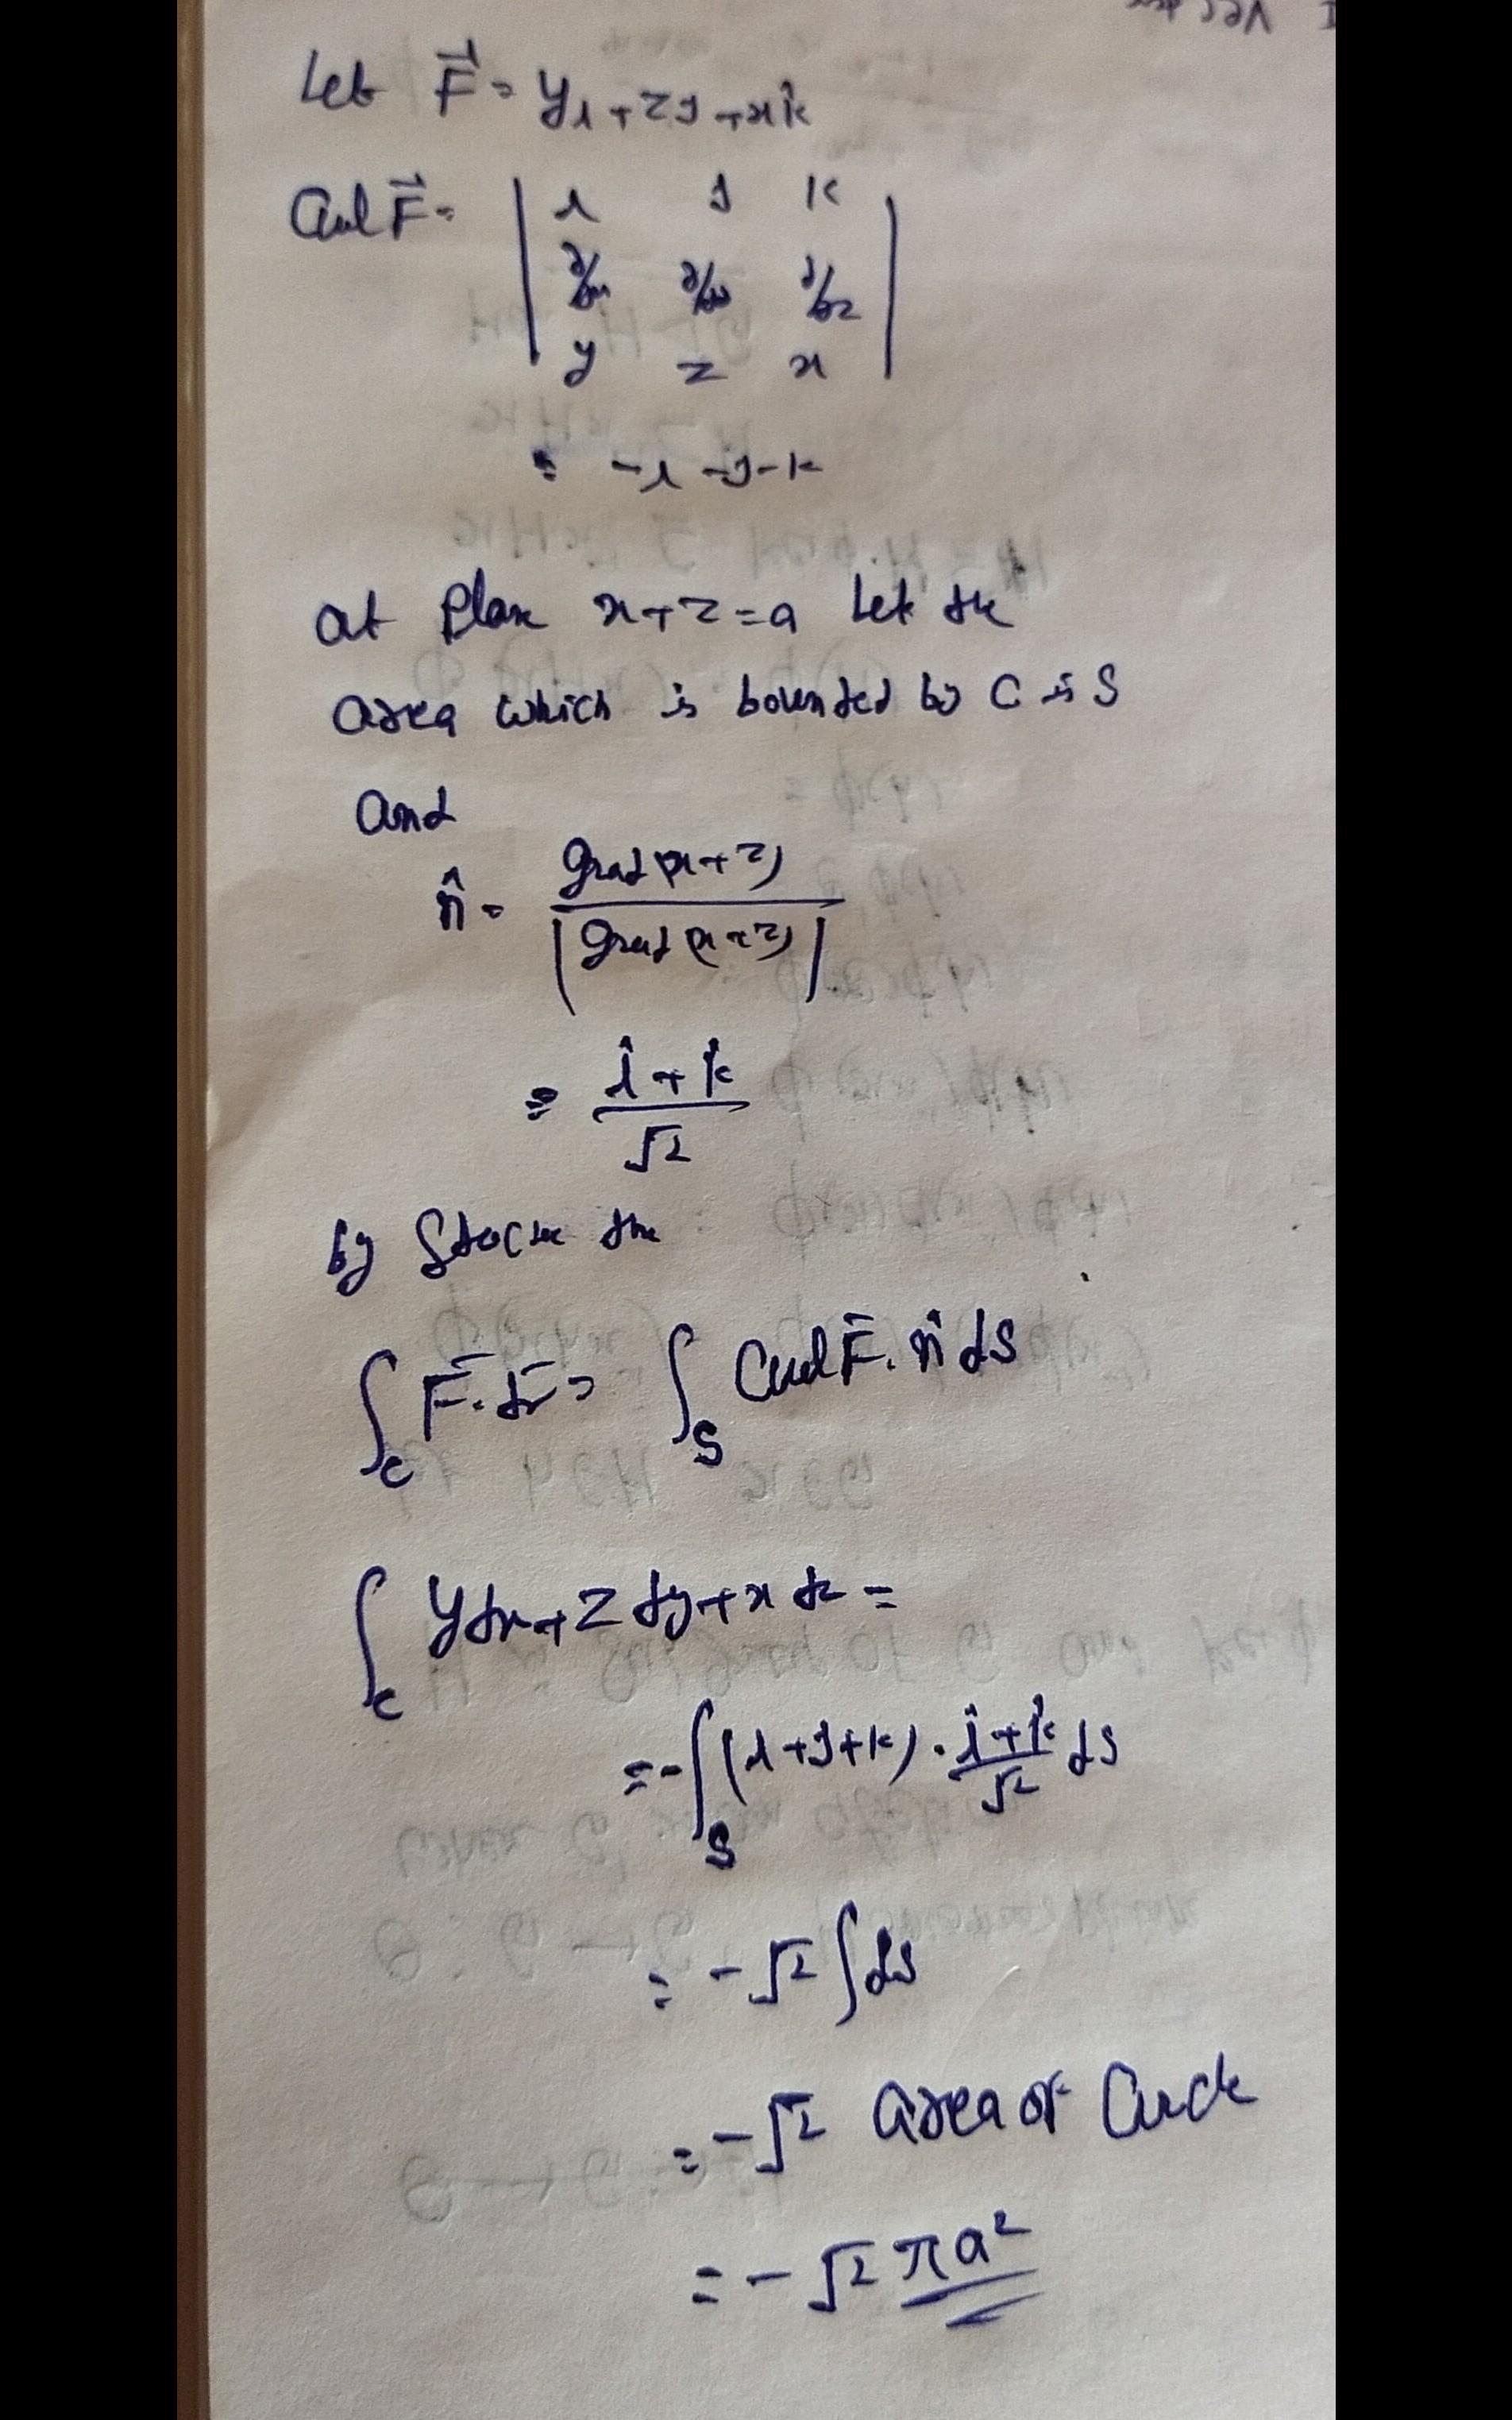 Let F⃗ = yi + zj + xk̂
Curl F⃗ = | i j k |
| ∂/∂x ∂/∂y ∂/∂z |
| y z x |
= -i -j -k
at Plane x+z=a Let the
area which is bounded by C is S
and
n̂ = grad(x+z) / |grad(x+z)|
= (î + k̂)/√2
by Stocke the
∫_C F̄.dr̄ = ∫_S Curl F̄. n̂ ds
∫_C ydx + z dy + x dz =
= -∫_S (i+j+k) . (î+k̂)/√2 ds
= -√2 ∫ds
= -√2 area of Circle
= -√2 πa²